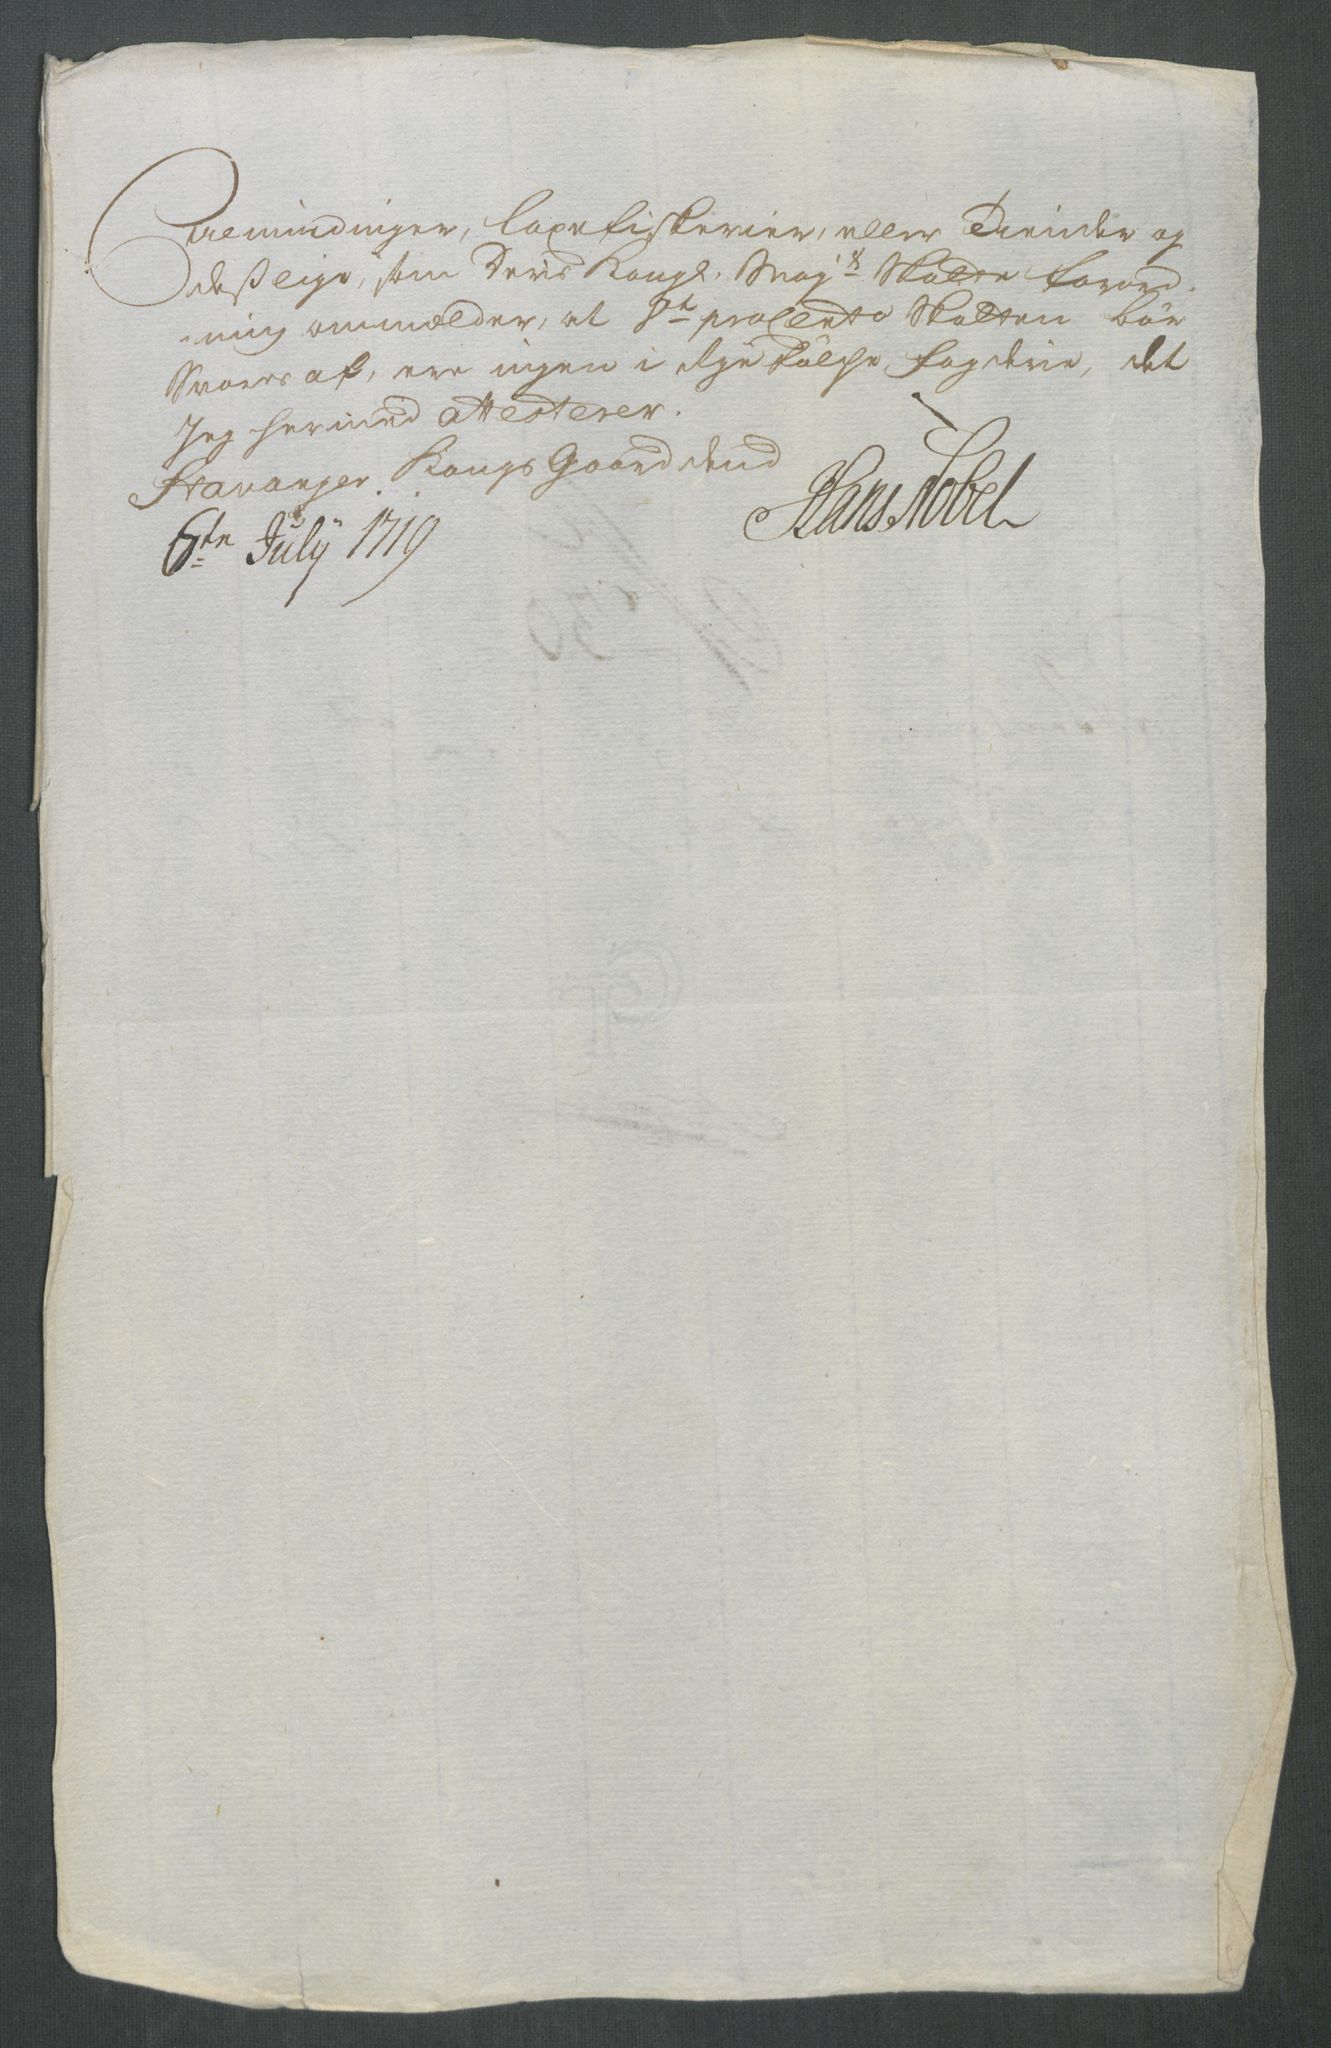 Almindinger, Laxefiskerier, eller Tiender og
desslige, som Deris Kongl. Maytz Skatte forord-
-ning ommælder, at 8te proCento Skatten bør
Svares af, ere ingen i dye følche fogderie, det
Jeg hermed attesterer.
Stavanger Kongs Gaard dend
6te July 1719
Hans Nobel